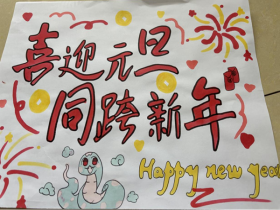 喜迎元旦
同跨新年
Happy new year